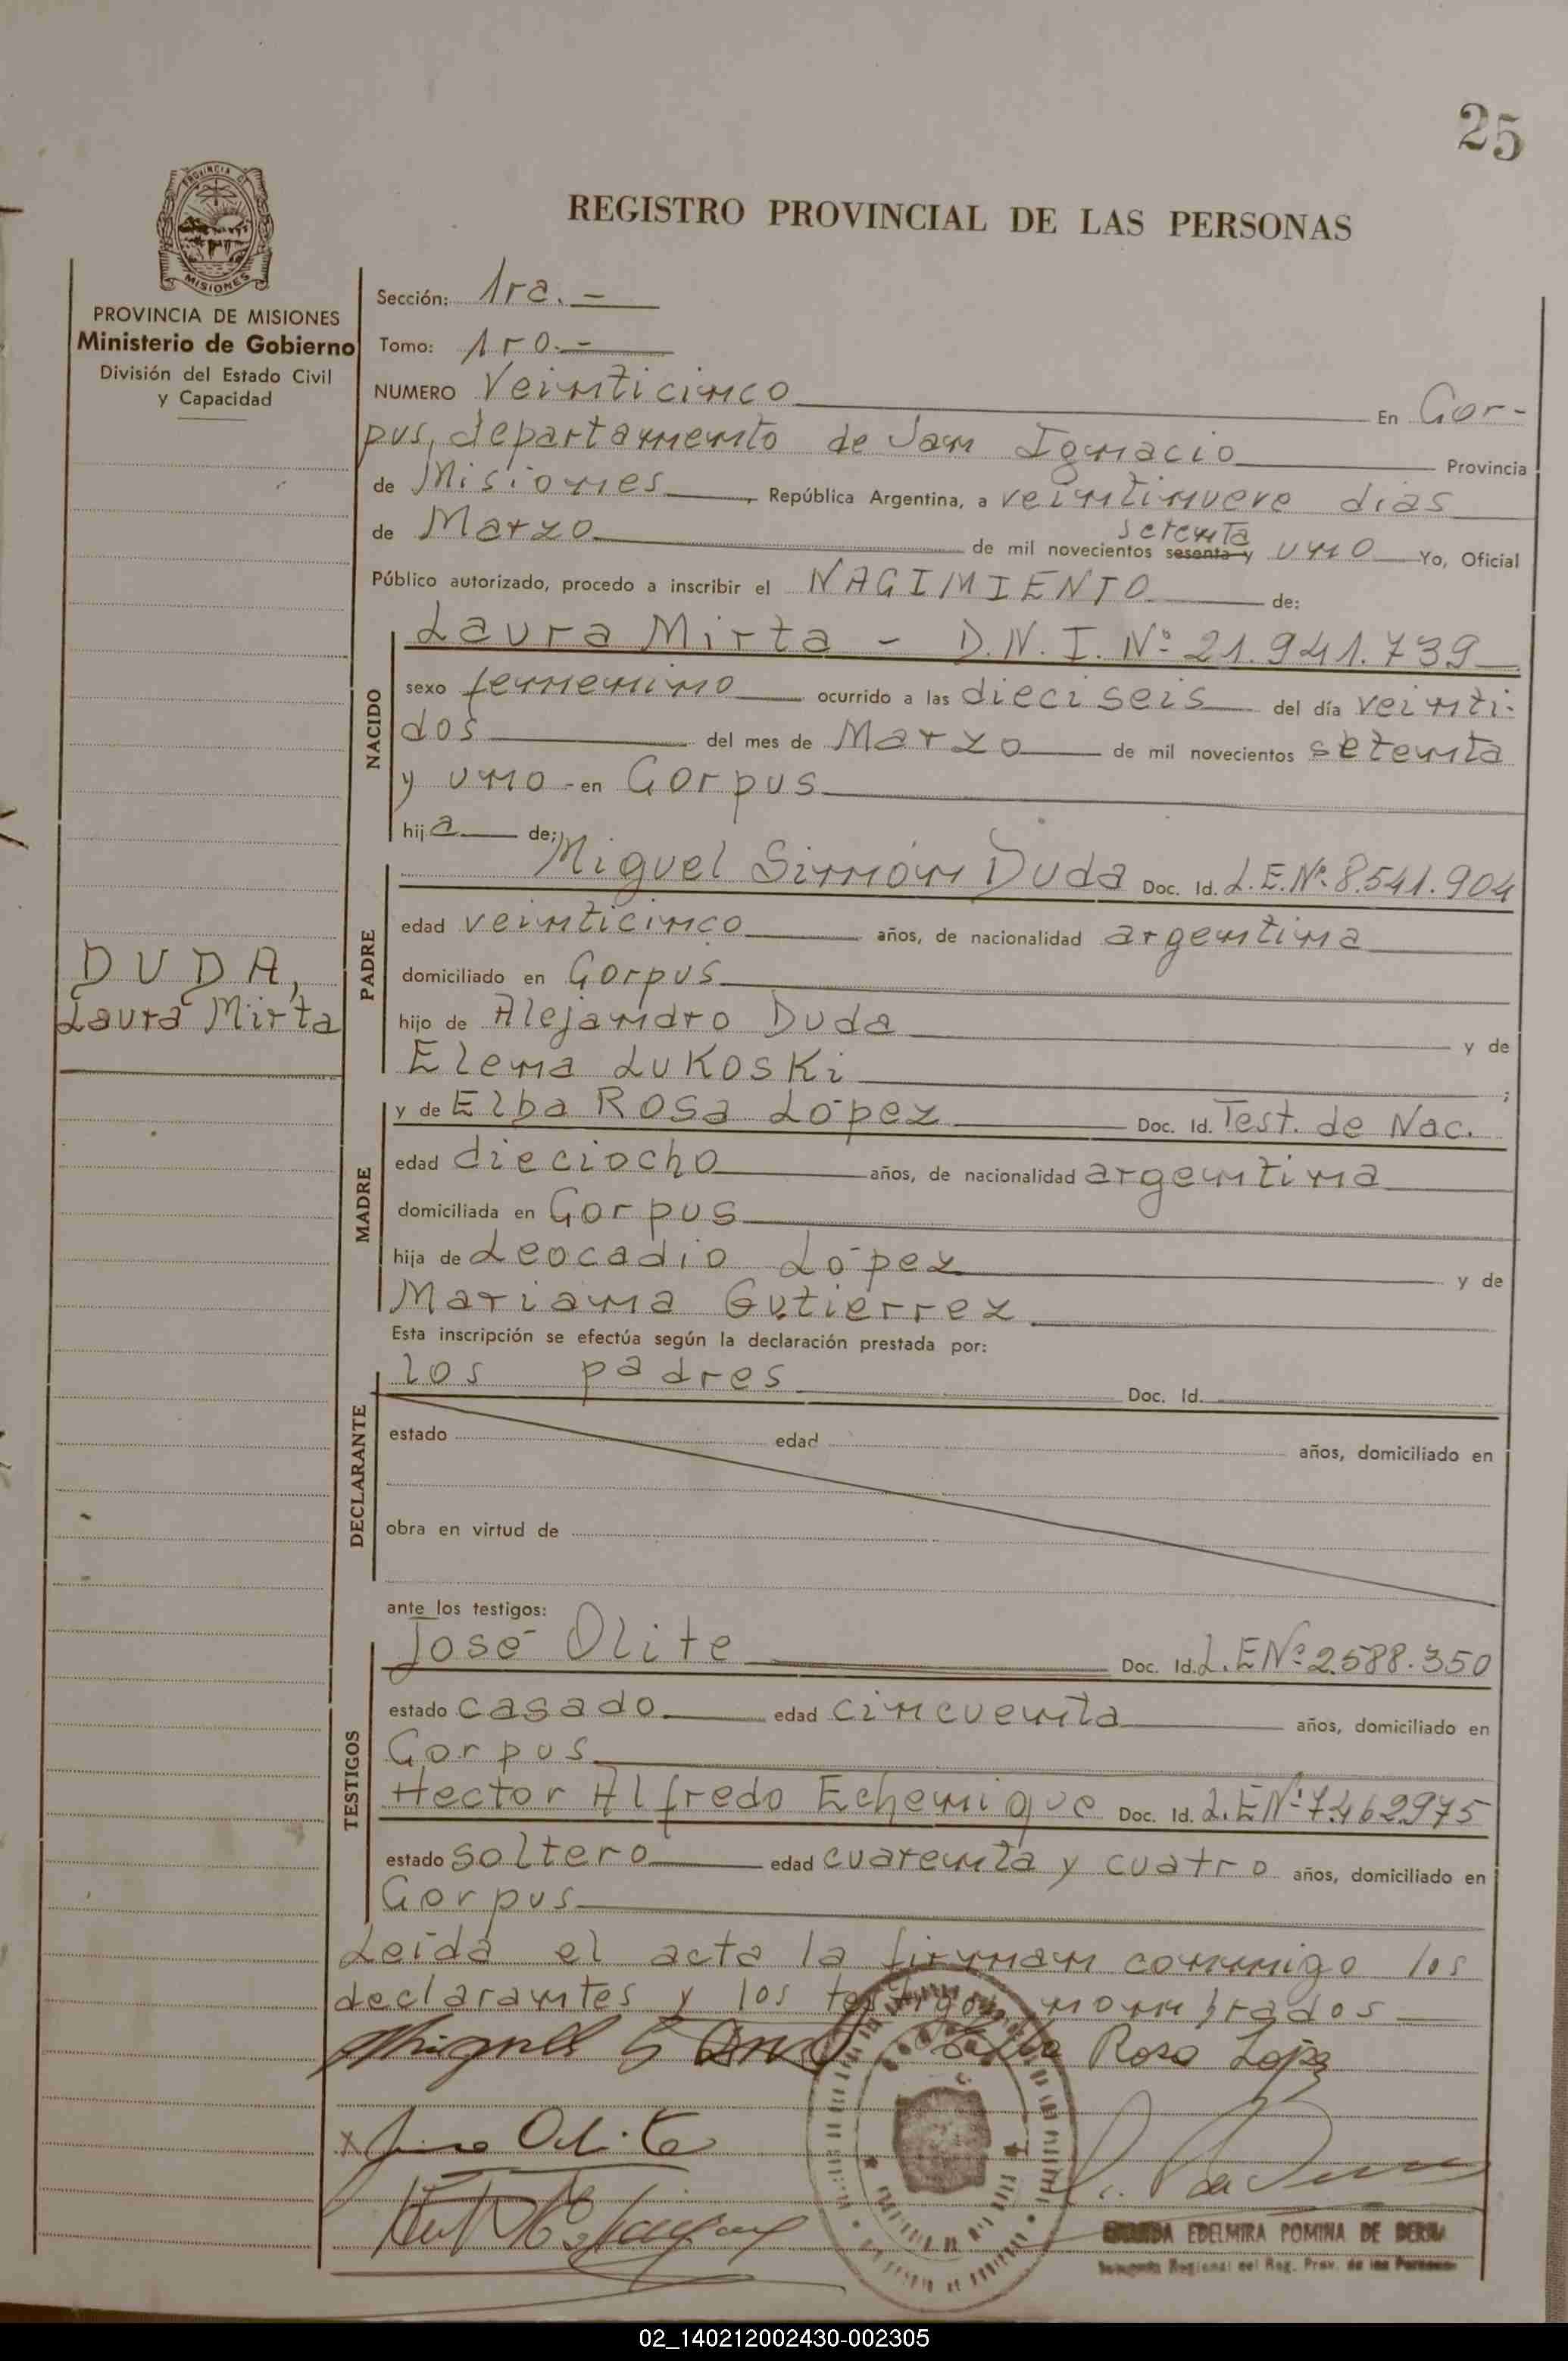 25
REGISTRO PROVINCIAL DE LAS PERSONAS
PROVINCIA DE MISIONES
MISIONES
PROVINCIA DE MISIONES
Ministerio de Gobierno
División del Estado Civil
y Capacidad
DUDA,
Laura Mirta
Sección: 1ra. -
Tomo: 1ro. -
NUMERO Veinticinco En Cor-
pus, departamento de San Ignacio Provincia
de Misiones, República Argentina, a veintinueve dias
setenta
de Marzo de mil novecientos sesenta y uno Yo, Oficial
Público autorizado, procedo a inscribir el NACIMIENTO de:
NACIDO
Laura Mirta - D.N.I. Nº 21.941.739
sexo femenino ocurrido a las dieciseis del día veinti-
dos del mes de Marzo de mil novecientos setenta
y uno - en Corpus
hija de:
PADRE
Miguel Simón Duda Doc. Id. L.E.Nº 8.541.904
edad veinticinco años, de nacionalidad argentina
domiciliado en Corpus
hijo de Alejandro Duda y de
Elena Lukoski ;
MADRE
y de Elba Rosa López Doc. Id. Test. de Nac.
edad dieciocho años, de nacionalidad argentina
domiciliada en Corpus
hija de Leocadio López y de
Mariana Gutierrez
Esta inscripción se efectúa según la declaración prestada por:
DECLARANTE
los padres Doc. Id.
estado edad años, domiciliado en
obra en virtud de
ante los testigos:
TESTIGOS
José Olite Doc. Id. L.E Nº 2.588.350
estado casado edad cincuenta años, domiciliado en
Corpus
Hector Alfredo Echenique Doc. Id. L.E Nº 7.462975
estado soltero edad cuarenta y cuatro años, domiciliado en
Corpus
Leída el acta la firman conmigo los
declarantes y los testigos nombrados
Miguel S Duda Elba Rosa López
x José Olite
EDELMIRA POMINA DE
Delegada Regional del Reg. Prov. de las Personas
02_140212002430-002305